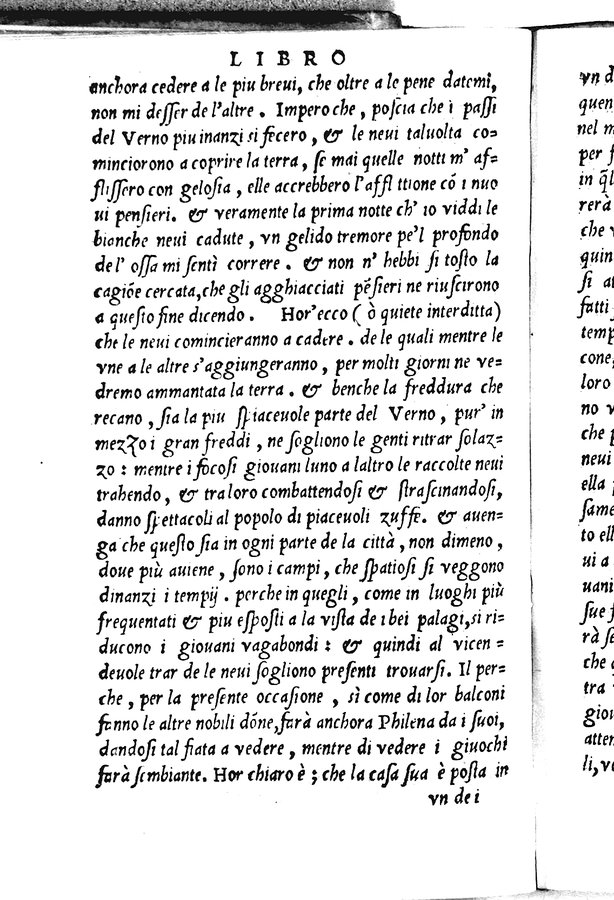 LIBRO
anchora cedere a le piu breui, che oltre a le pene datemi,
non mi desser de l'altre. Impero che, poscia che i passi
del Verno piu inanzi si fecero, & le neui taluolta co=
minciorono a coprire la terra, se mai quelle notti m' af=
flissero con gelosia, elle accrebbero l'affl ttione cõ i nuo
ui pensieri. & veramente la prima notte ch' io viddi le
bianche neui cadute, vn gelido tremore pe'l profondo
de l' ossa mi sentì correre. & non n' hebbi si tosto la
cagiõe cercata, che gli agghiacciati pẽsieri ne riuscirono
a questo fine dicendo. Hor'ecco (ò quiete interditta)
che le neui comincieranno a cadere. de le quali mentre le
vne a le altre s'aggiungeranno, per molti giorni ne ve=
dremo ammantata la terra. & benche la freddura che
recano, sia la piu spiaceuole parte del Verno, pur' in
mezzo i gran freddi, ne sogliono le genti ritrar solaz=
zo: mentre i focosi giouani luno a laltro le raccolte neui
trahendo, & tra loro combattendosi & strascinandosi,
danno spettacoli al popolo di piaceuoli zuffe. & auen=
ga che questo sia in ogni parte de la città, non dimeno,
doue più auiene, sono i campi, che spatiosi si veggono
dinanzi i tempij. perche in quegli, come in luoghi più
frequentati & piu esposti a la vista de i bei palagi, si ri=
ducono i giouani vagabondi: & quindi al vicen=
deuole trar de le neui sogliono presenti trouarsi. Il per=
che, per la presente occasione, sì come di lor balconi
fanno le altre nobili dõne, farà anchora Philena da i suoi,
dandosi tal fiata a vedere, mentre di vedere i giuochi
farà sembiante. Hor chiaro è; che la casa sua è posta in
vn de i
vn d
quen
nel m
per f
in q̃l
rerà
che v
quin
si at
fatti
temp
cone,
loro
no v
che p
neui
ella
same
to ell
ui a
uani
sue f
rà se
che
tra
giou
atten
li, ve